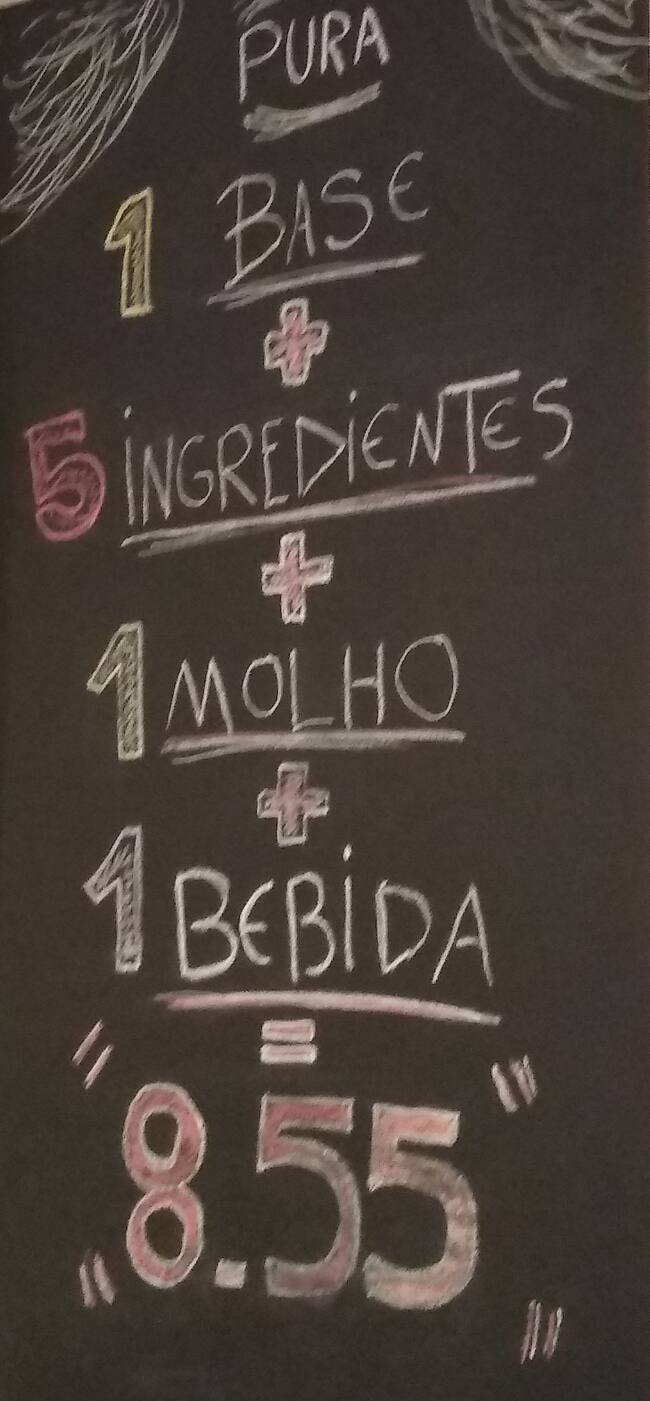 PURA
1 BASE
+
5 INGREDIENTES
+
1 MOLHO
+
1 BEBIDA
=
" 8.55 "